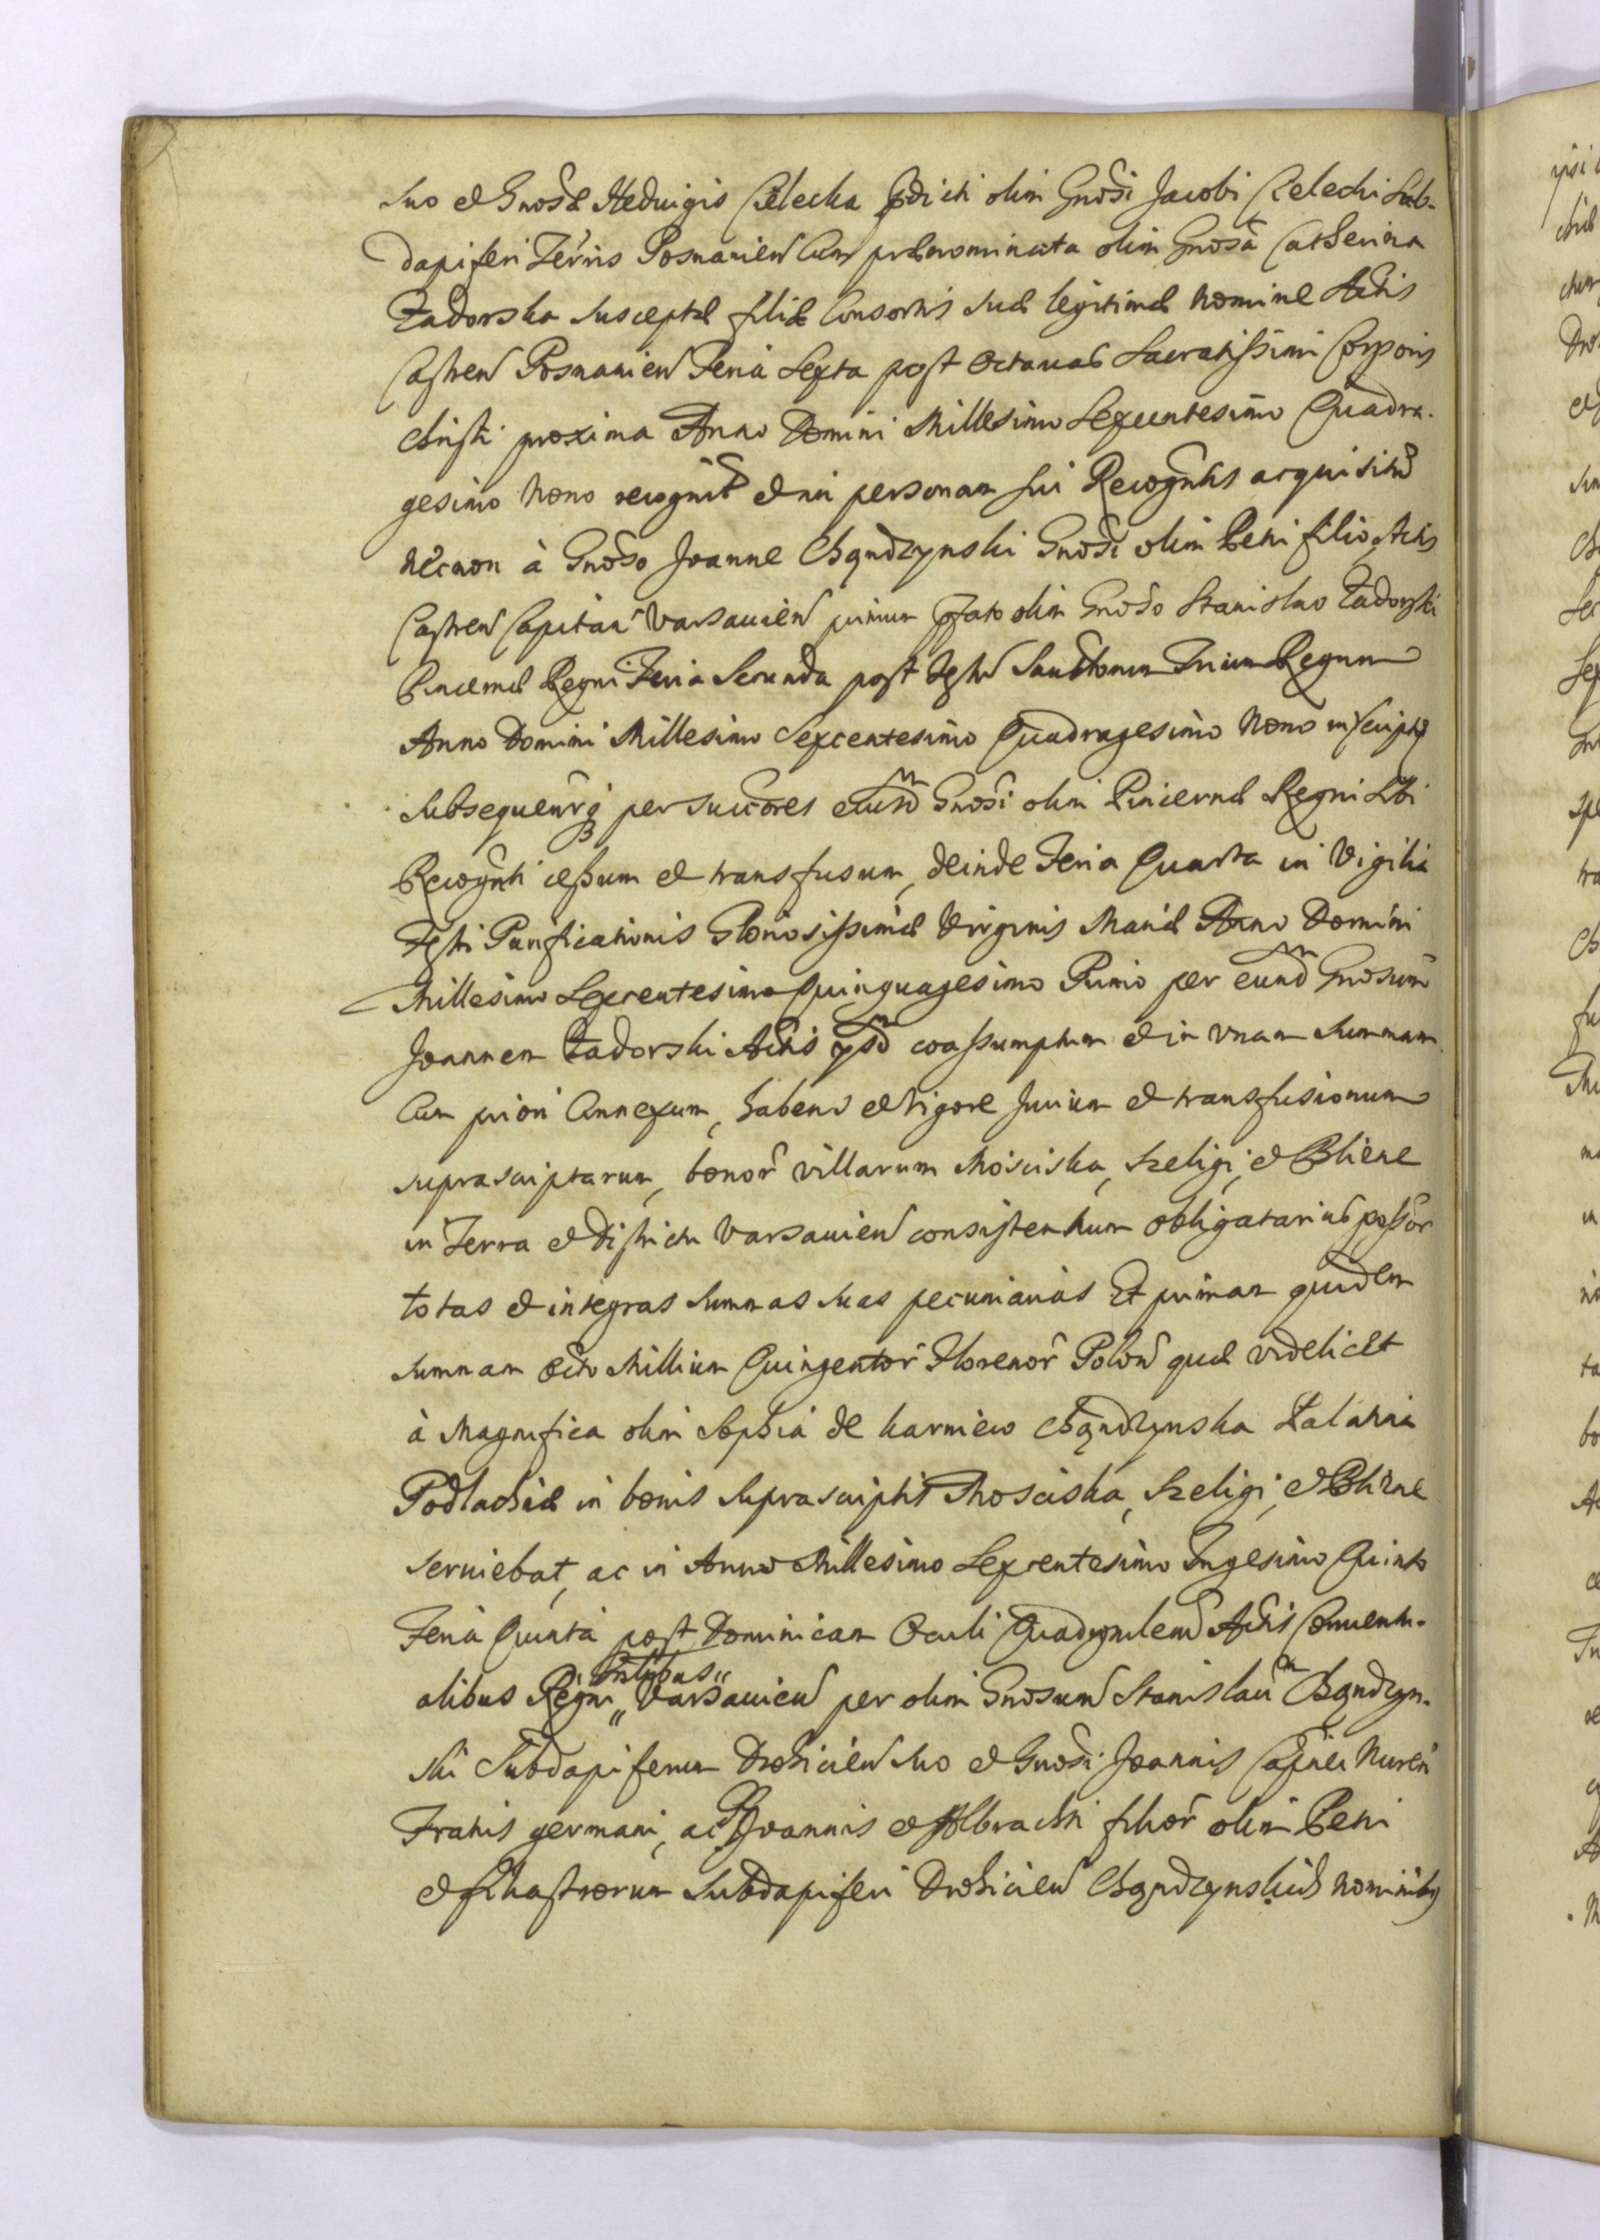 suo et Gnosæ Hedvigis Cielecka pdicti olim Gnosi Jacobi Cielecki Sub-
dapiferi Terris Posnanien cum prænominata olim Gnosa Catherina
Zadorska susceptæ filiæ Consortis suæ legitimæ nomine Actis
Castren Posnanien Feria Sexta post octavas Sacratissimi Corporis
Christi proxima Anno Domini Millesimo Sexcentesimo Quadra-
gesimo Nono recognit et in personam sui Recognitis acquisitum
necnon à Gnoso Joanne Chądzynski Gnosi olim Petri filio, Actis
Castren Capitan Varsavien primum pfato olim Gnoso Stanislao Zadorski
Pincernæ Regni Feria Secunda post Festum Sanctorum Trium Regum
Anno Domini Millesimo Sexcentesimo Quadragesimo Nono inscriptum
subsequenterq per succores eiusdem Gnosi olim Pincernæ Regni sibi
Recognti cessum et transfusum, deinde Feria Quarta in Vigilia
Festi Purificationis Gloriosissimæ Virginis Mariæ Anno Domini
Millesimo Sexcentesimo Quinquagesimo Primo per eund Gnosum
Joannem Zadorski Actis ysd coassumptum et in vnam summam
cum priori Annexum, habens et vigore Jurium et transfusionum
suprascriptarum, bonor villarum Mosciska, Szeligi, et Blizne
in Terra et Districtu Varsavien consistentium obligatarius possor
totas et integras summas suas pecuniarias Et primam quidem
summam octo Millium Quingentor Florenor Polon quæ videlicet
à Magnifica olim Sophia de Karniewo Chądzynska Palatina
Podlachiæ in bonis suprascriptis Mosciska, Szeligi, et Blizne
serviebat, ac in Anno Millesimo Sexcentesimo Trigesimo Quinto
Feria Quinta post Dominicam Oculi Quadragmlem Actis Conventu-
alibus Regni Varsavien per olim Gnosum Stanislau Chądzyn-
ski Subdapiferum Drohicien suo et Gnosi Joannis Nuren
Fratris germani, ac Joannis et Albrachti filior olim Petri
et filiastrorum Subdapiferi Drohicien Chądzynskich nominibus